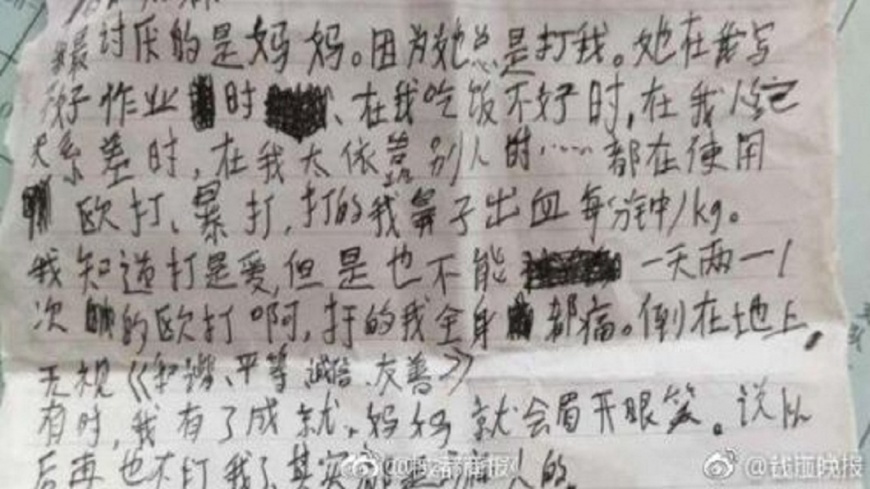 最讨厌的是妈妈。因为她总是打我。她在我写
好作业时、在我吃饭不好时,在我人
关系差时,在我太依靠别人时……都在使用
欧打、暴打,打的我鼻子出血每分钟1kg。
我知道打是爱,但是也不能一天两一1
次的欧打啊,打的我全身都痛。倒在地上,
无视《和谐、平等、诚信、友善》
有时,我有了成就,妈妈就会眉开眼笑。说以
后再也不打我了其实都是人的。
@钱江晚报